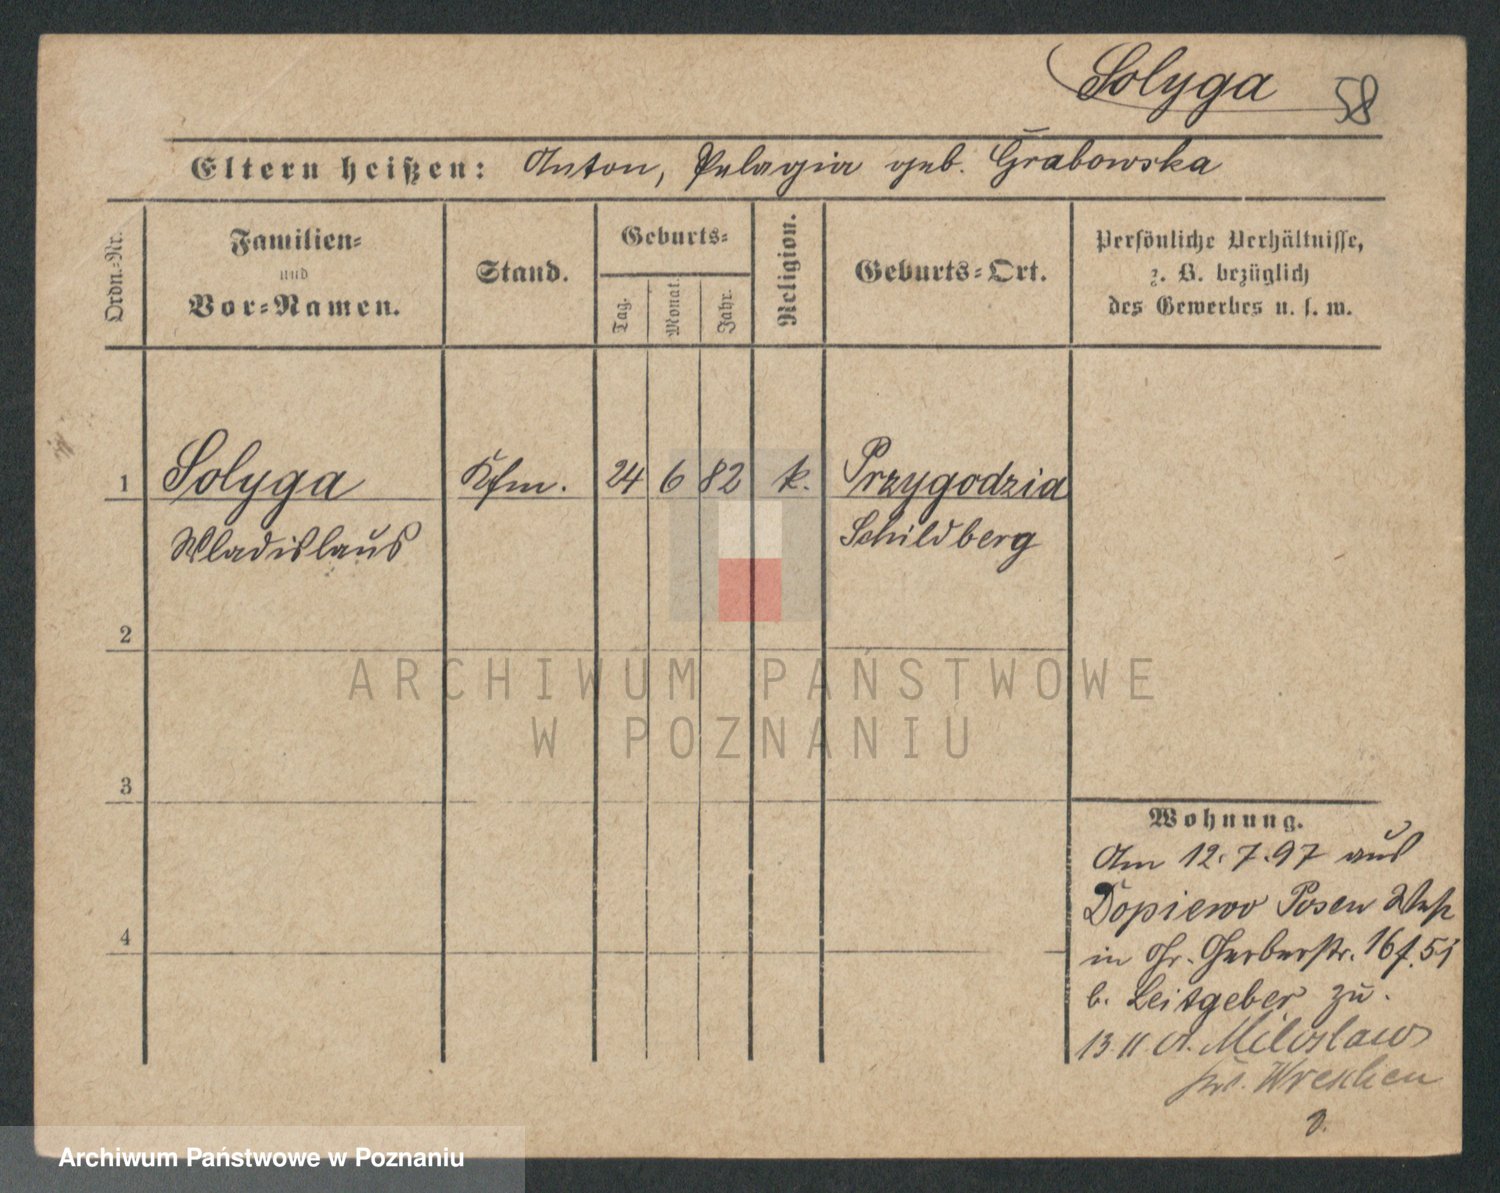 Solyga 58
Eltern heißen: Anton, Pelagia geb. Grabowska
Ordn.-Nr.
Familien-
und
Vor-Namen.
Stand.
Geburts-
Tag.
Monat.
Jahr.
Religion.
Geburts-Ort.
Persönliche Verhältnisse,
z. B. bezüglich
des Gewerbes u. s. w.
1 Solyga Kfm. 24 6 82 k. Przygodzia
Wladislaus Schildberg
2
3
4
Wohnung.
Am 12.7.97 aus
Dopiewo Posen
in Gr. Gerberstr. 16 f. 51
b. Leitgeber zu.
13.11 a. Miloslaw
Wreschen
ARCHIWUM PAŃSTWOWE
W POZNANIU
Archiwum Państwowe w Poznaniu